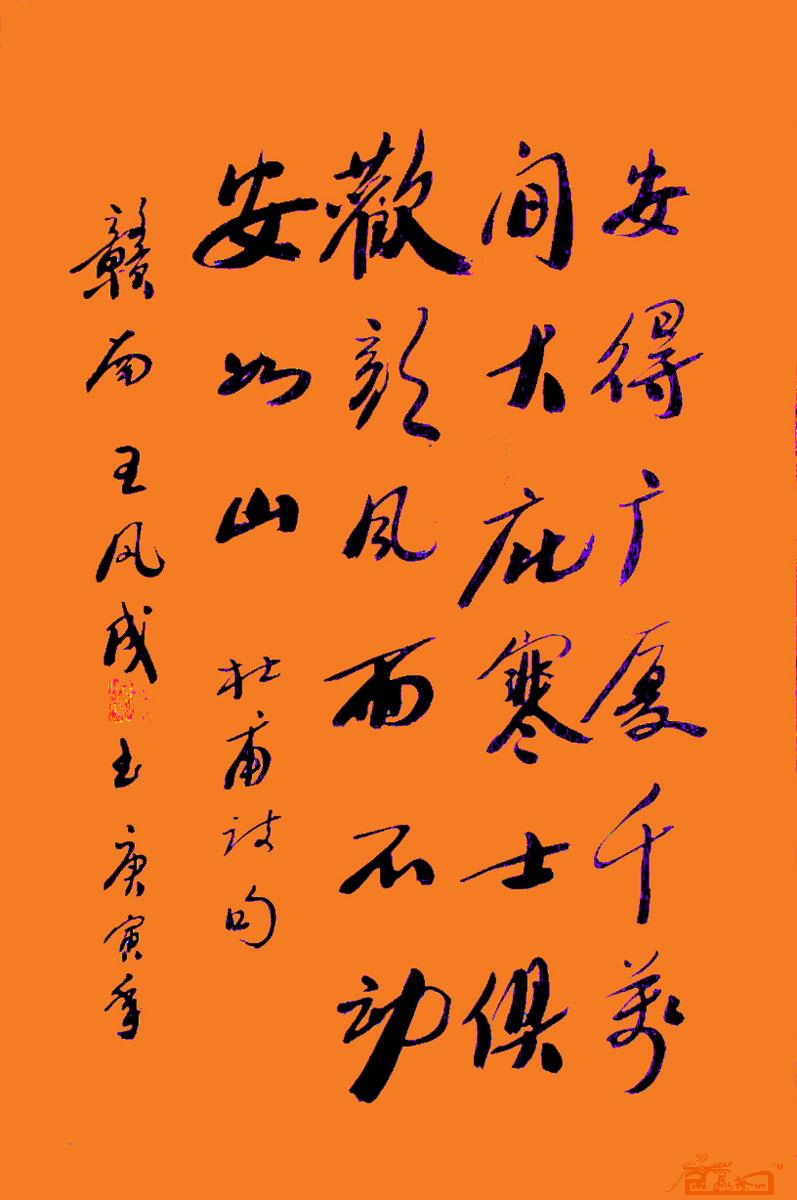 安得广厦千萬
间大庇寒士俱
歡颜风雨不动
安如山 杜甫诗句
贛南王风成书庚寅年